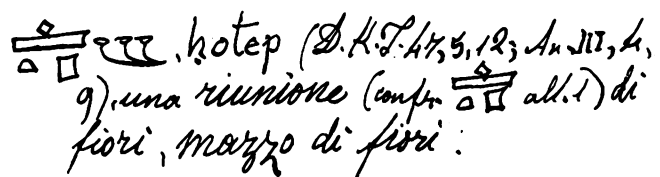 , ḥotep (D.K.T. 47, 5, 12; An. III, 4,
9), una riunione (confr. all. 1) di
fiori, mazzo di fiori: